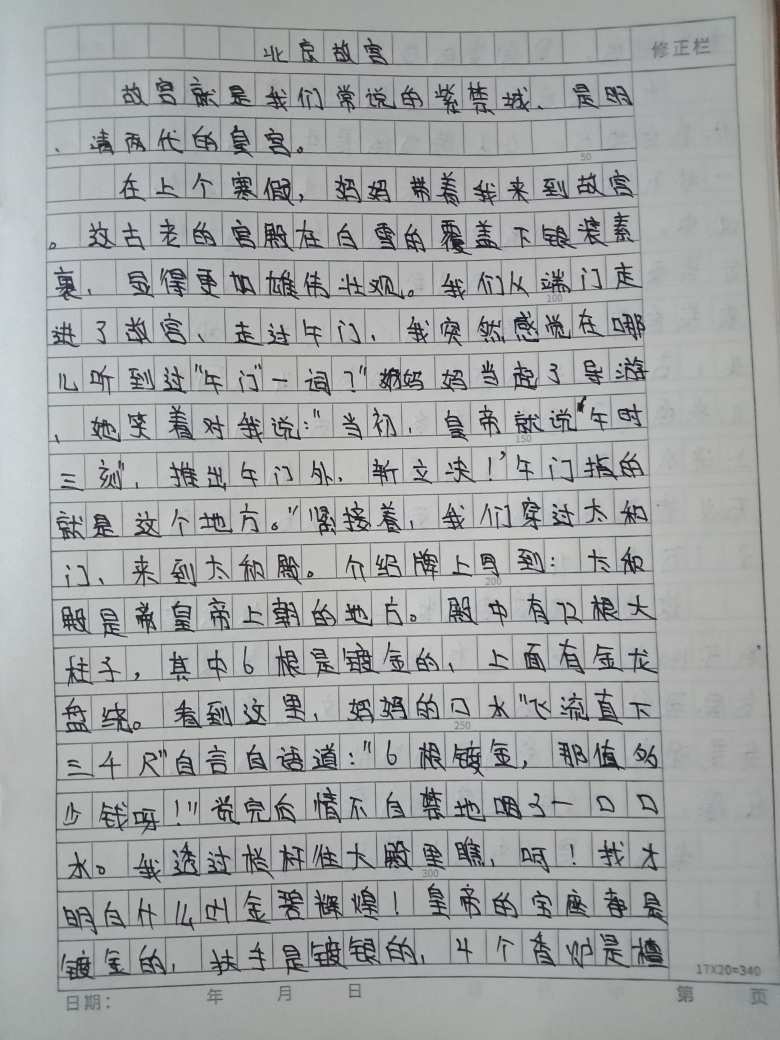 北京故宫
修正栏
故宫就是我们常说的紫禁城、是明
、清两代的皇宫。
50
在上个寒假，妈妈带着我来到故宫
。这古老的宫殿在白雪的覆盖下银装素
裹、显得更加雄伟壮观。我们从端门走
100
进了故宫、走过午门、我突然感觉在哪
儿听到过"午门"一词？"妈妈当起了导游
、她笑着对我说："当初、皇帝就说'午时
150
三刻'、推出午门外、斩立决！'午门指的
就是这个地方。"紧接着、我们穿过太和
门、来到太和殿。介绍牌上写到：太和
200
殿是皇帝上朝的地方。殿中有72根大
柱子，其中6根是镀金的、上面有金龙
盘绕。看到这里、妈妈的口水"飞流直下
250
三千尺"自言自语道："6根镀金，那值多
少钱呀！"说完后情不自禁地咽了一口口
水。我透过栏杆往大殿里瞧，呵！我才
300
明白什么叫金碧辉煌！皇帝的宝座都是
镀金的、扶手是镀银的、4个香炉是檀
17X20=340
日期： 年 月 日 第 页